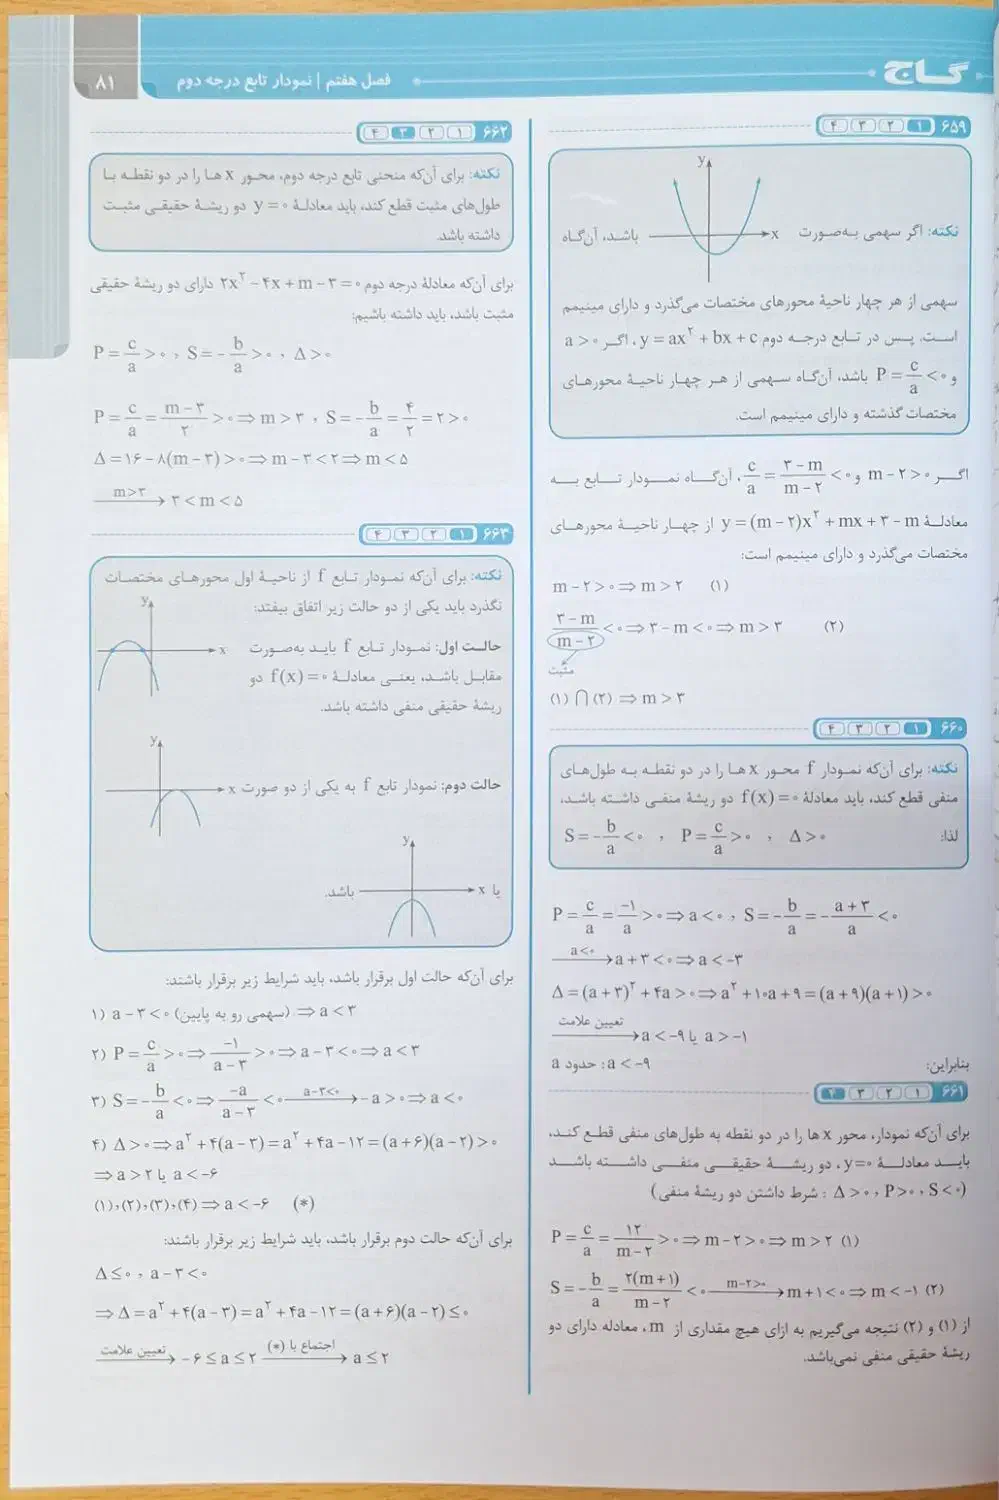 گاج
فصل هفتم | نمودار تابع درجه دوم
۸۱
۶۵۹ ۱ ۲ ۳ ۴
y
نکته: اگر سهمی به‌صورت x باشد، آن‌گاه
سهمی از هر چهار ناحیهٔ محورهای مختصات می‌گذرد و دارای مینیمم
است. پس در تابع درجه دوم y = ax² + bx + c، اگر a > ۰
و P = c/a < ۰ باشد، آن‌گاه سهمی از هر چهار ناحیهٔ محورهای
مختصات گذشته و دارای مینیمم است.
اگر m − ۲ > ۰ و c/a = (۳ − m)/(m − ۲) < ۰، آن‌گاه نمودار تابع به
معادلهٔ y = (m − ۲)x² + mx + ۳ − m از چهار ناحیهٔ محورهای
مختصات می‌گذرد و دارای مینیمم است:
m − ۲ > ۰ ⇒ m > ۲ (۱)
(۳ − m)/(m − ۲) < ۰ ⇒ ۳ − m < ۰ ⇒ m > ۳ (۲)
مثبت
(۱) ⋂ (۲) ⇒ m > ۳
۶۶۰ ۱ ۲ ۳ ۴
نکته: برای آن‌که نمودار f محور x ها را در دو نقطه به طول‌های
منفی قطع کند، باید معادلهٔ f(x) = ۰ دو ریشهٔ منفی داشته باشد،
لذا: S = −b/a < ۰ , P = c/a > ۰ , Δ > ۰
P = c/a = −۱/a > ۰ ⇒ a < ۰ , S = −b/a = −(a + ۳)/a < ۰
a<۰ → a + ۳ < ۰ ⇒ a < −۳
Δ = (a + ۳)² + ۴a > ۰ ⇒ a² + ۱۰a + ۹ = (a + ۹)(a + ۱) > ۰
تعیین علامت → a < −۹ یا a > −۱
بنابراین: حدود a : a < −۹
۶۶۱ ۱ ۲ ۳ ۴
برای آن‌که نمودار، محور x ها را در دو نقطه به طول‌های منفی قطع کند،
باید معادلهٔ y=۰، دو ریشهٔ حقیقی منفی داشته باشد
(Δ > ۰ , P > ۰ , S < ۰ : شرط داشتن دو ریشهٔ منفی)
P = c/a = ۱۲/(m − ۲) > ۰ ⇒ m − ۲ > ۰ ⇒ m > ۲ (۱)
S = −b/a = ۲(m + ۱)/(m − ۲) < ۰ m−۲>۰ → m + ۱ < ۰ ⇒ m < −۱ (۲)
از (۱) و (۲) نتیجه می‌گیریم به ازای هیچ مقداری از m، معادله دارای دو
ریشهٔ حقیقی منفی نمی‌باشد.
۶۶۲ ۱ ۲ ۳ ۴
نکته: برای آن‌که منحنی تابع درجه دوم، محور x ها را در دو نقطه با
طول‌های مثبت قطع کند، باید معادلهٔ y = ۰ دو ریشهٔ حقیقی مثبت
داشته باشد.
برای آن‌که معادلهٔ درجه دوم ۲x² − ۴x + m − ۳ = ۰ دارای دو ریشهٔ حقیقی
مثبت باشد، باید داشته باشیم:
P = c/a > ۰ , S = −b/a > ۰ , Δ > ۰
P = c/a = (m − ۳)/۲ > ۰ ⇒ m > ۳ , S = −b/a = ۴/۲ = ۲ > ۰
Δ = ۱۶ − ۸(m − ۳) > ۰ ⇒ m − ۳ < ۲ ⇒ m < ۵
m>۳ → ۳ < m < ۵
۶۶۳ ۱ ۲ ۳ ۴
نکته: برای آن‌که نمودار تابع f از ناحیهٔ اول محورهای مختصات
نگذرد باید یکی از دو حالت زیر اتفاق بیفتد:
y
حالت اول: نمودار تابع f باید به‌صورت x
مقابل باشد، یعنی معادلهٔ f(x) = ۰ دو
ریشهٔ حقیقی منفی داشته باشد.
y
حالت دوم: نمودار تابع f به یکی از دو صورت x
y
یا x باشد.
برای آن‌که حالت اول برقرار باشد، باید شرایط زیر برقرار باشند:
۱) a − ۳ < ۰ (سهمی رو به پایین) ⇒ a < ۳
۲) P = c/a > ۰ ⇒ −۱/(a − ۳) > ۰ ⇒ a − ۳ < ۰ ⇒ a < ۳
۳) S = −b/a < ۰ ⇒ −a/(a − ۳) < ۰ a−۳<۰ → −a > ۰ ⇒ a < ۰
۴) Δ > ۰ ⇒ a² + ۴(a − ۳) = a² + ۴a − ۱۲ = (a + ۶)(a − ۲) > ۰
⇒ a > ۲ یا a < −۶
(۱),(۲),(۳),(۴) ⇒ a < −۶ (*)
برای آن‌که حالت دوم برقرار باشد، باید شرایط زیر برقرار باشند:
Δ ≤ ۰ , a − ۳ < ۰
⇒ Δ = a² + ۴(a − ۳) = a² + ۴a − ۱۲ = (a + ۶)(a − ۲) ≤ ۰
تعیین علامت → −۶ ≤ a ≤ ۲ اجتماع با (*) → a ≤ ۲